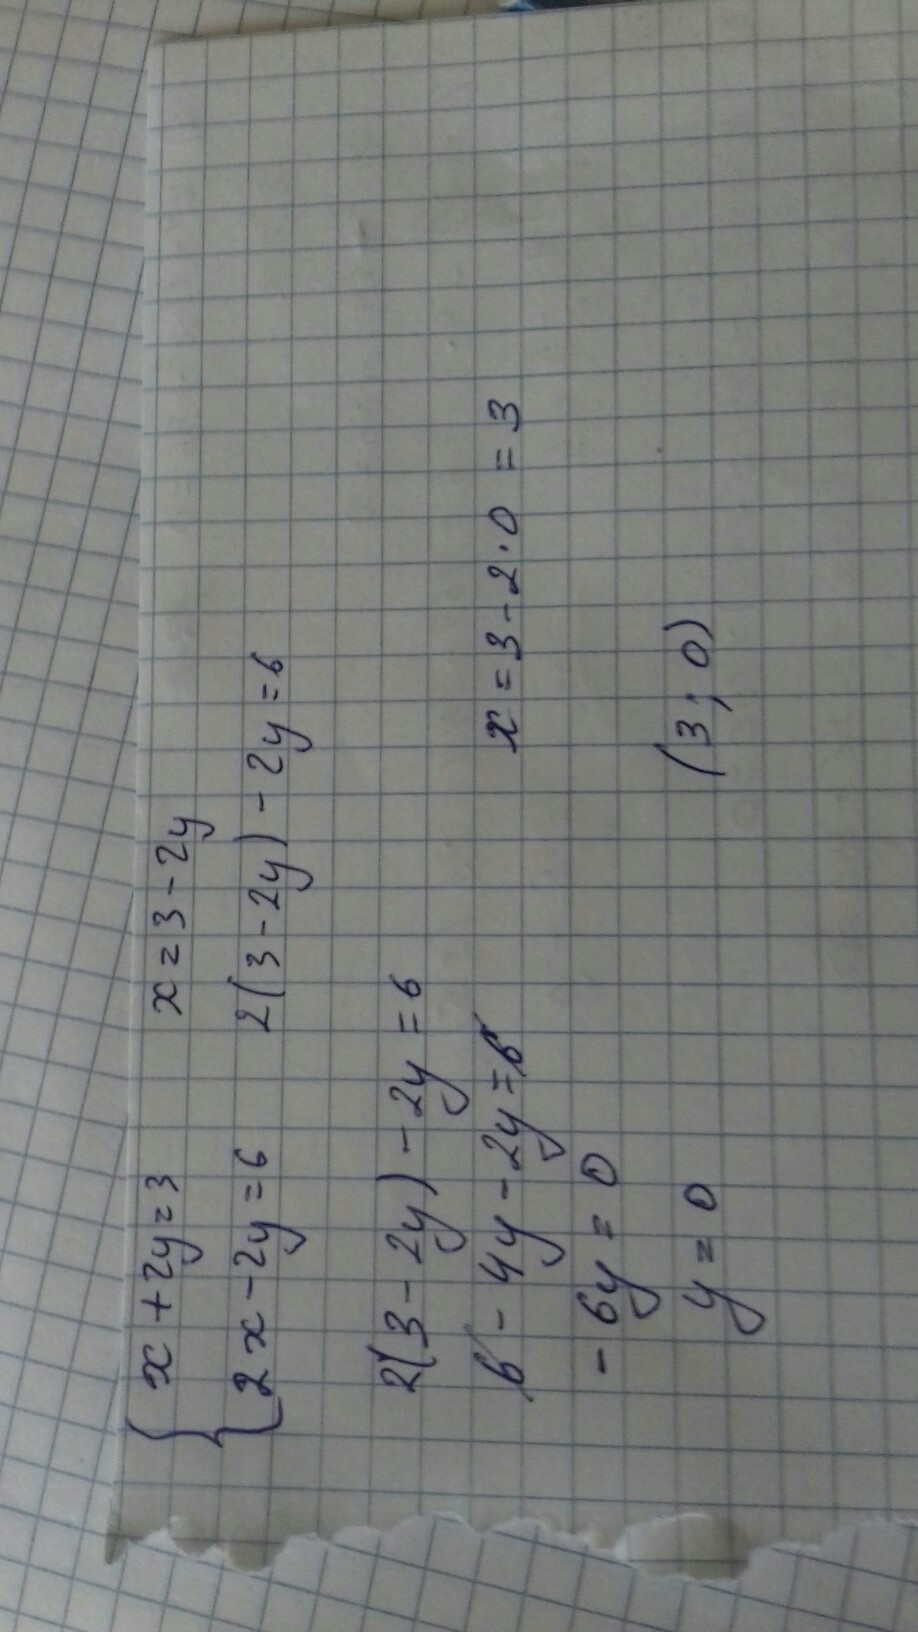 { x + 2y = 3 x = 3 - 2y
2x - 2y = 6 2(3 - 2y) - 2y = 6
2(3 - 2y) - 2y = 6
6 - 4y - 2y = 6 x = 3 - 2 · 0 = 3
- 6y = 0
y = 0 (3 ; 0)